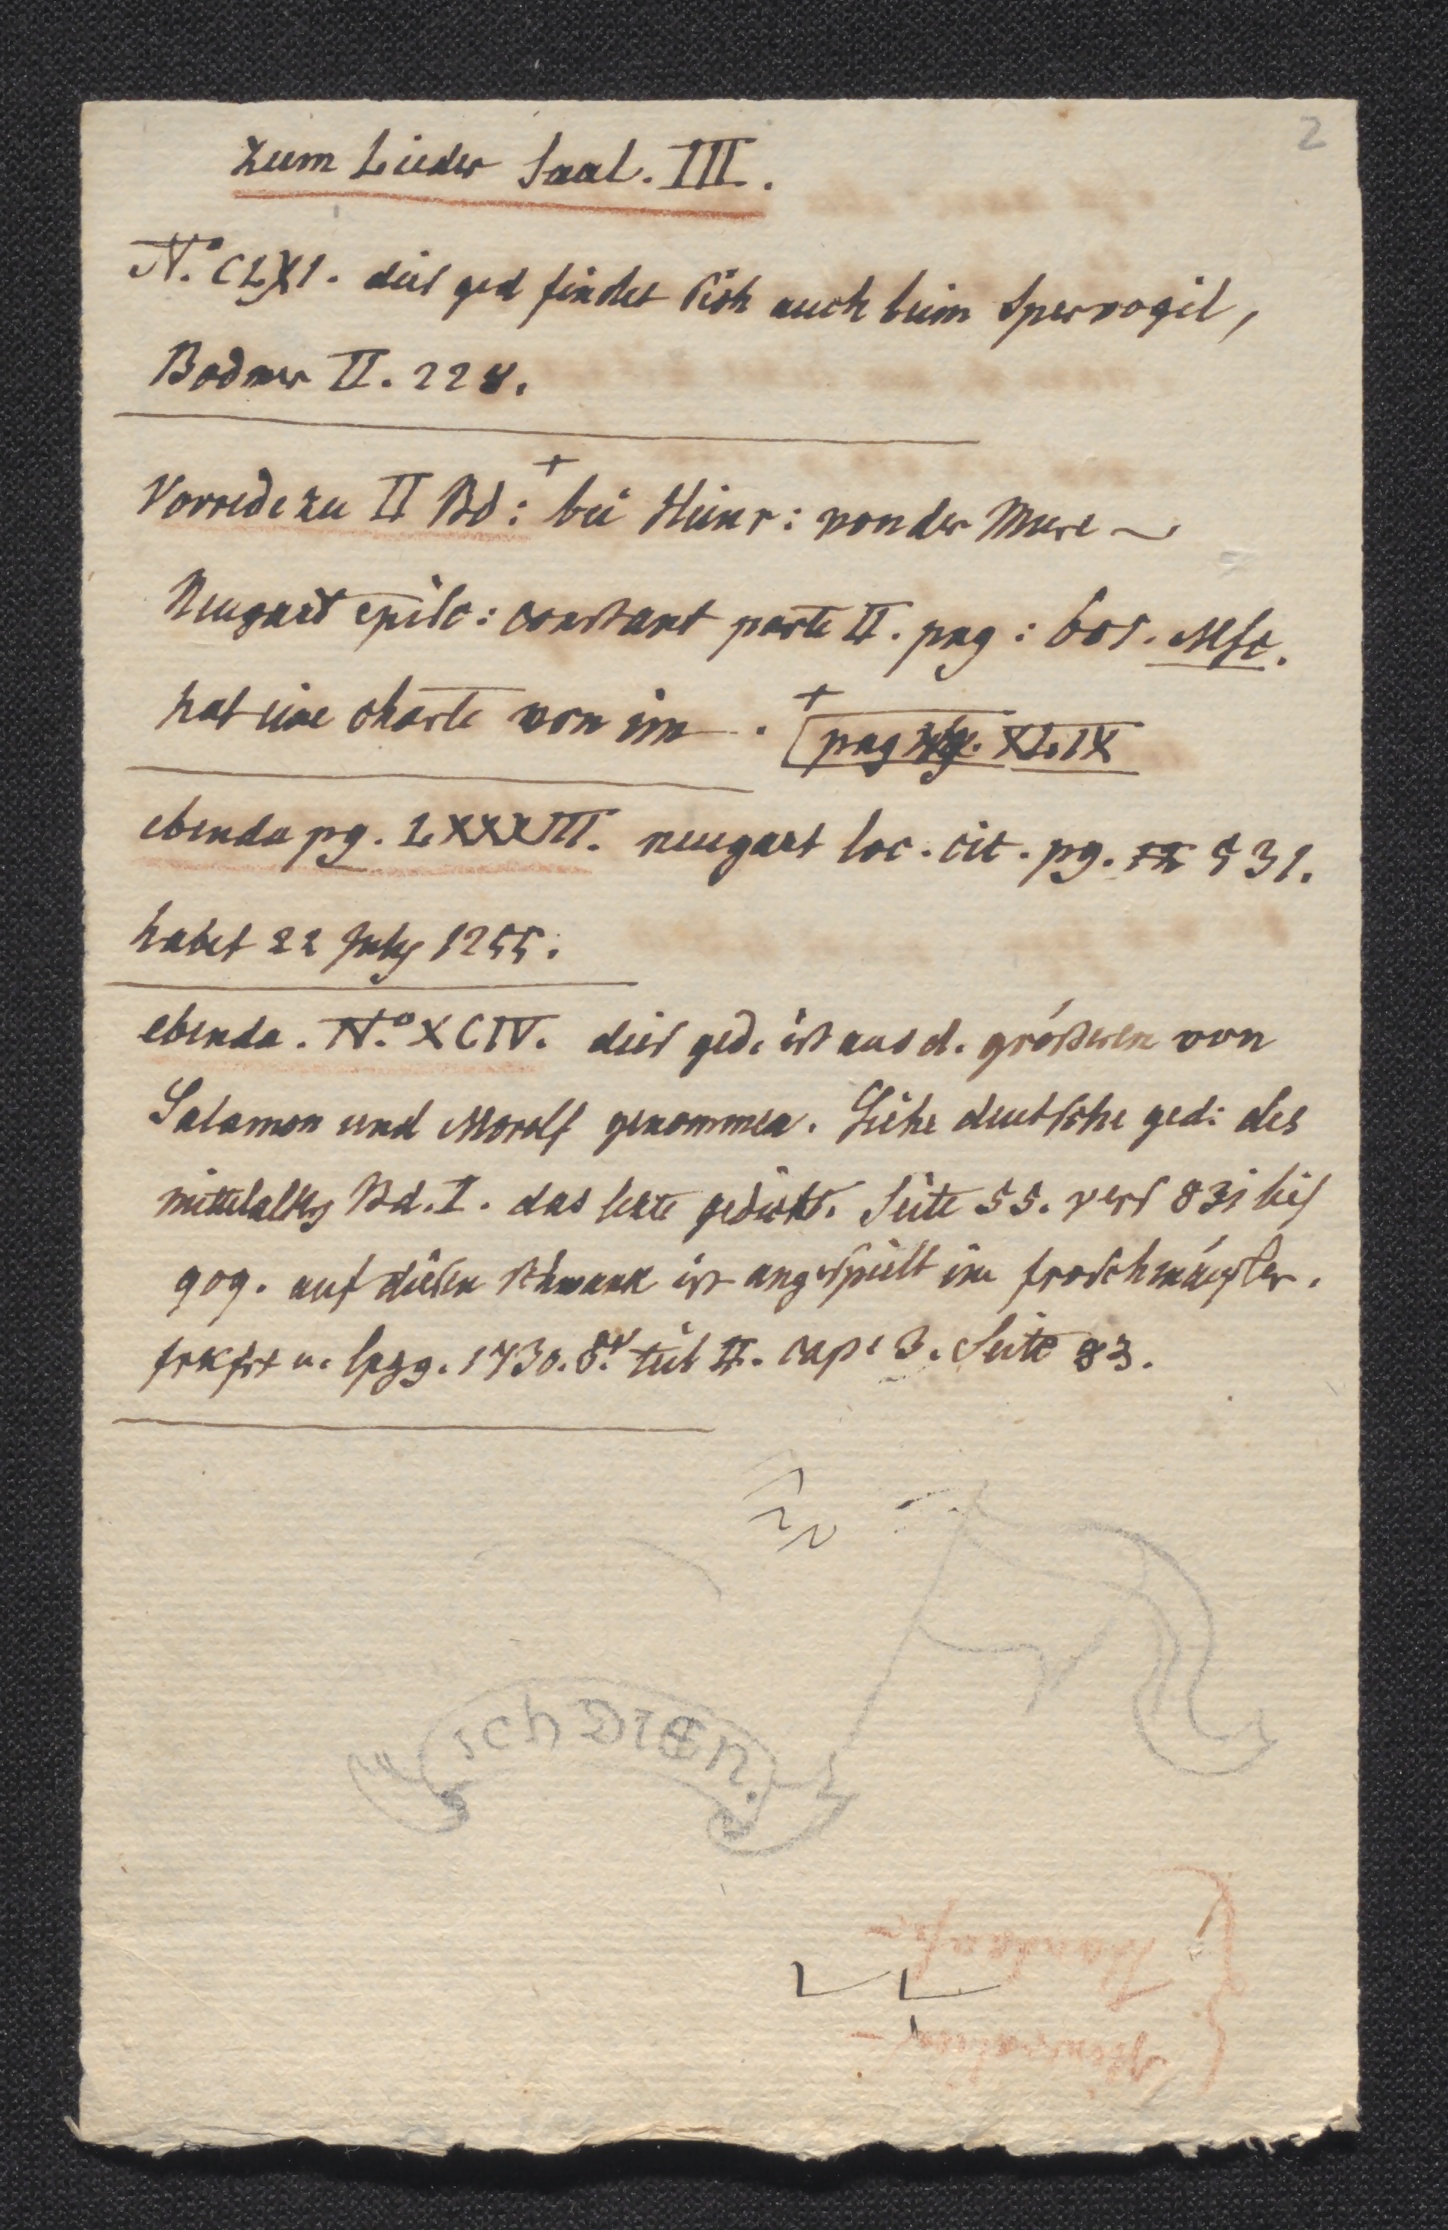 2
zum Lieder Saal. III.
N.o CLXI. dies ged findet sich auch beim Spervogil,
Bodmer II. 228.
Vorrede zu II Bd: + bei Heinr: von der Mure ~
Neugart episc: constant parte II. pag: 605. Msc.
hat eine charte von im. + pag XLIX
ebenda pg. LXXXVIII. neugart loc. cit. pg. 531.
habet 22 July 1255.
ebenda. N.o XCIV. dies ged. ist aus d. größeren von
Salamon und Morolf genommen. Siehe deutsche ged: des
mittelalters Bd. I. das lezte gedicht. Seite 55. vers 831 bis
909. auf diesen schwank ist angespielt im froschmäusler.
frkfrt u. lpzg. 1730. 8.o teil II. cap: 3. Seite 83.
ich Dien.